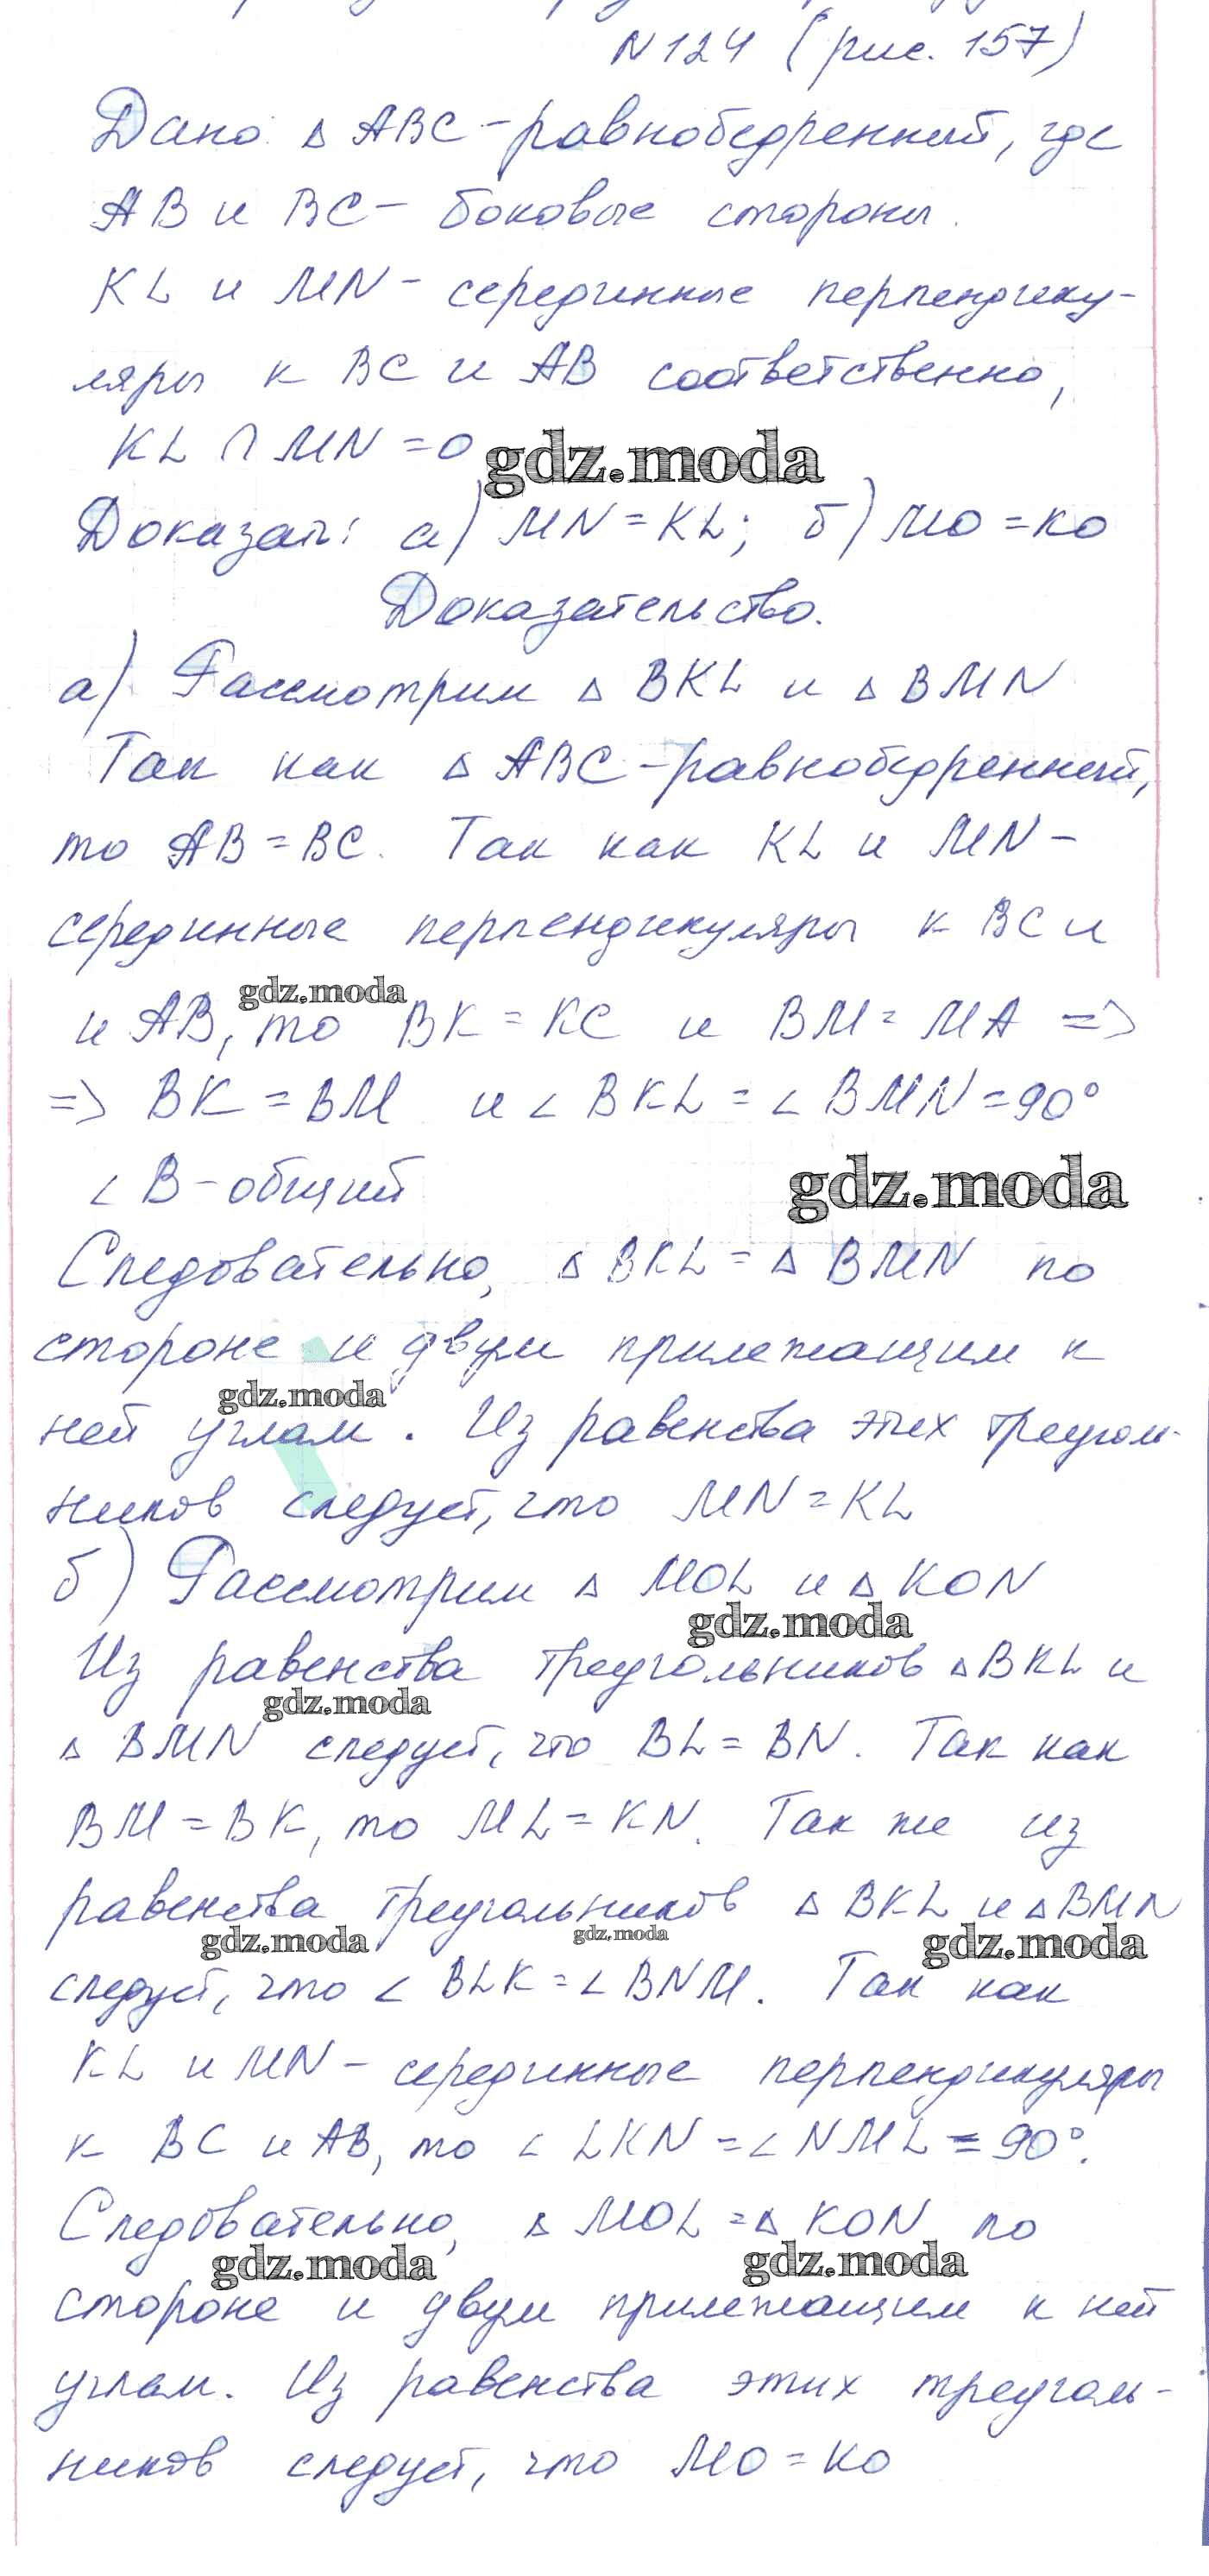 N 124 (рис. 157)
Дано: △ ABC - равнобедренный, где
AB и BC - боковые стороны.
KL и MN - серединные перпендику-
ляры к BC и AB соответственно,
KL ∩ MN = O
gdz.moda
Доказать: а) MN = KL; б) MO = KO
Доказательство.
а) Рассмотрим △ BKL и △ BMN
Так как △ ABC - равнобедренный,
то AB = BC. Так как KL и MN -
серединные перпендикуляры к BC и
gdz.moda
и AB, то BK = KC и BM = MA =>
=> BK = BM и ∠ BKL = ∠ BMN = 90°
∠ B - общий
gdz.moda
Следовательно, △ BKL = △ BMN по
стороне и двум прилежащим к
gdz.moda
ней углам. Из равенства этих треуголь-
ников следует, что MN = KL
б) Рассмотрим △ MOL и △ KON
gdz.moda
Из равенства треугольников △ BKL и
gdz.moda
△ BMN следует, что BL = BN. Так как
BM = BK, то ML = KN. Так же из
равенства треугольников △ BKL и △ BMN
gdz.moda gdz.moda gdz.moda
следует, что ∠ BLK = ∠ BNM. Так как
KL и MN - серединные перпендикуляры
к BC и AB, то ∠ LKN = ∠ NML = 90°.
Следовательно, △ MOL = △ KON по
gdz.moda gdz.moda
стороне и двум прилежащим к ней
углам. Из равенства этих треуголь-
ников следует, что MO = KO